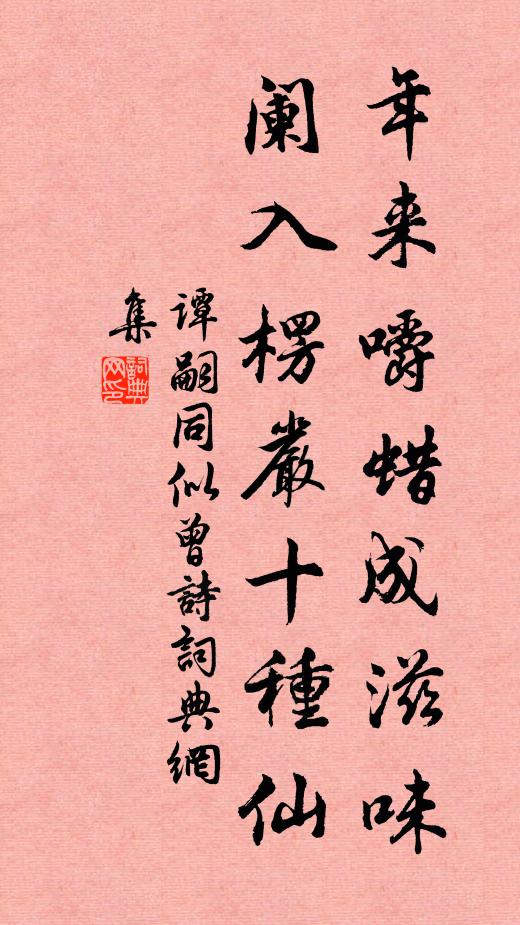 年来嚼蜡成滋味
阑入楞嚴十種仙
谭嗣同似曾詩詞典網
集
詞典
网印